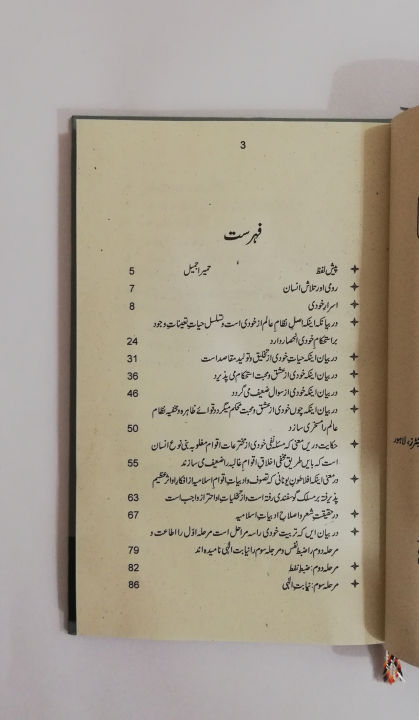 3
فہرست
پیش لفظ حمیرا جمیل 5
رومی اور تلاش انسان 7
اسرارِ خودی 8
در بیان اینکہ اصلِ نظامِ عالم از خودی است و تسلسلِ حیاتِ تعیناتِ وجود
بر استحکامِ خودی انحصار دارد 24
در بیان اینکہ حیاتِ خودی از تخلیق و تولیدِ مقاصد است 31
در بیان اینکہ خودی از عشق و محبت استحکام می پذیرد 36
در بیان اینکہ خودی از سوال ضعیف می گردد 46
در بیان اینکہ چوں خودی از عشق و محبت محکم میگردد قوائے ظاہرہ و مخفیہ نظام
عالم را مسخر می سازد 50
حکایت دریں معنی کہ مسئلہ نفی خودی از مخترعات اقوام مغلوبہ بنی نوع انسان
است کہ بایں طریق مخفی اخلاقِ اقوام غالبہ را ضعیف می سازند 55
در معنی اینکہ افلاطونِ یونانی کہ تصوف و ادبیاتِ اقوام اسلامیہ از افکار او اثر عظیم
پذیرفتہ بر مسلک گوسفندی رفتہ است و از تخیلات او احتراز واجب است 63
در حقیقتِ شعر و اصلاح ادبیاتِ اسلامیہ 67
در بیان ایں کہ تربیت خودی را سہ مراحل است مرحلہ اوّل را اطاعت و
مرحلہ دوم را ضبط نفس و مرحلہ سوم را نیابت الٰہی نامیدہ اند 79
مرحلہ دوم: ضبط نفط 82
مرحلہ سوم: نیابت الٰہی 86
لاہور